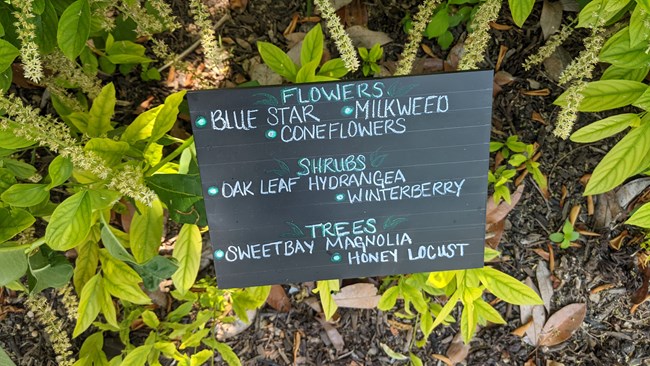 FLOWERS
BLUE STAR • MILKWEED
• CONEFLOWERS
SHRUBS
• OAK LEAF HYDRANGEA
• WINTERBERRY
TREES
• SWEETBAY MAGNOLIA
• HONEY LOCUST